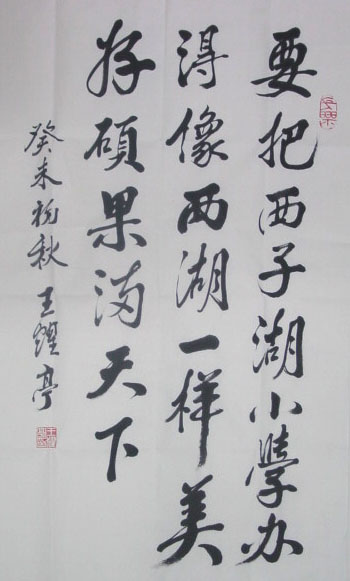 要把西子湖小學办
得像西湖一样美
好硕果满天下
癸未初秋 王锽亭